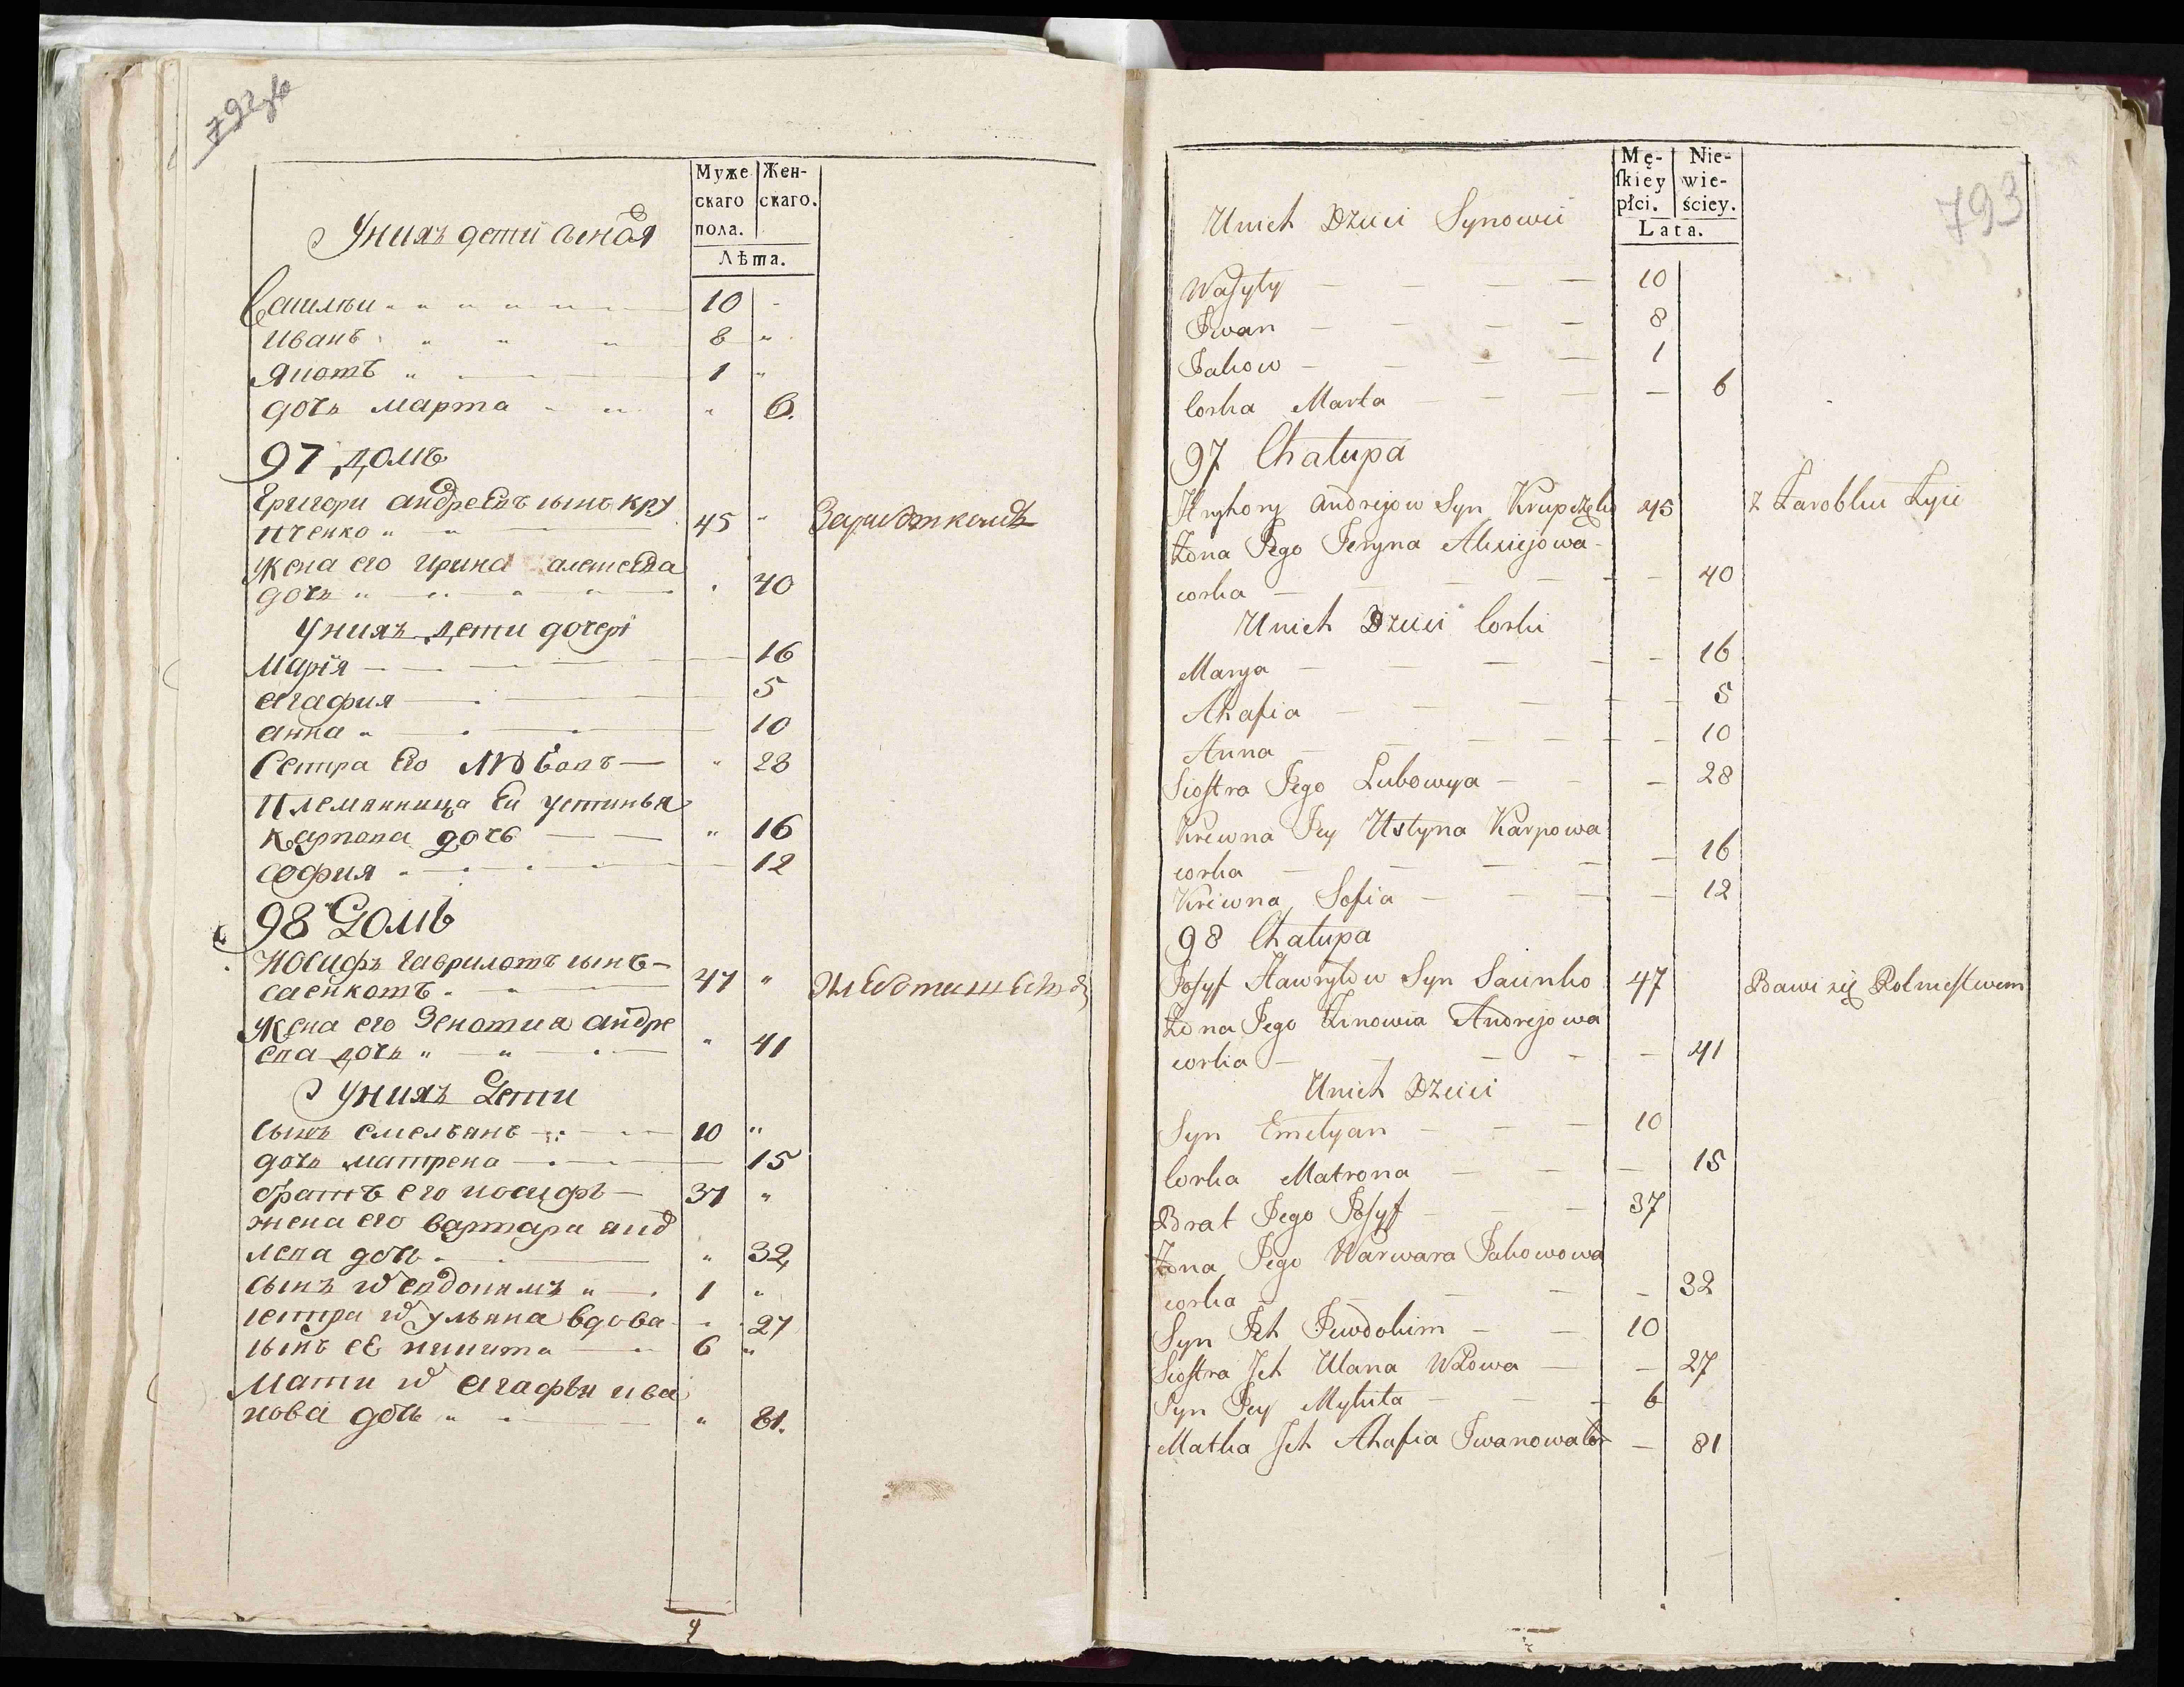 792 об
Муже
скаго
пола.
Жен-
скаго.
Лѣта.
Унихъ дети синовя
Васильи 10 -
Иванъ 8 "
Яковъ 1 "
дочь Марта " 6.
97 домъ
Григори андреевъ сынъ кру
пченко 45 "
Жена его Ирина алексеева
дочь 40
Унихъ дети дочери
Мария 16
Агафия 5
анна 10
Сестра Его Любовъ " 28
Племянница Ей Устинья
Карпова дочь " 16
София 12
98 Домъ
Иосифъ Гавриловъ сынъ
саенковъ 47 "
Жена его Зеновия андре
ева дочь " 41
Унихъ Дети
Сынъ Емельянъ 10 "
дочь матрена 15
братъ его иосифъ 37 "
жена его варвара
дочь " 32
Сынъ 1 "
сестра ульяна вдова 27
сынъ еЕ никита 6 "
Мати агафья ива
нова дочь " 81.
793
Mę-
skiey
płci.
Nie-
wie-
ściey.
Lata.
Unich Dzieci Synowii
Wasyly 10
Iwan 8
Jakow 1
Corka Marta 6
97 Chałupa
Hryhory Andrejow Syn Krupczęko 45 z Zarobku Zyie
Żona Jego Jeryna Alexiejowa
corka 40
Unich Dzieci Corki
Marya 16
Ahafia 5
Anna 10
Siostra Jego Lubowya 28
Krewna Jey Ustyna Karpowa
corka 16
Krewna Sofia 12
98 Chałupa
Josyf Hawryłow Syn Saienko 47 Bawi się Rolnictwem
Żona Jego Zinowia Andrejowa
corka 41
Unich Dzieci
Syn Emelyan 10
Corka Matrona 15
Brat Jego Josyf 37
Żona Jego Warwara Jakowowa
corka 32
Syn Ich Jewdokim 10
Siostra Ich Ulana Wdowa 27
Syn Jey Mykita 6
Matka Ich Ahafia Iwanowa Cor 81